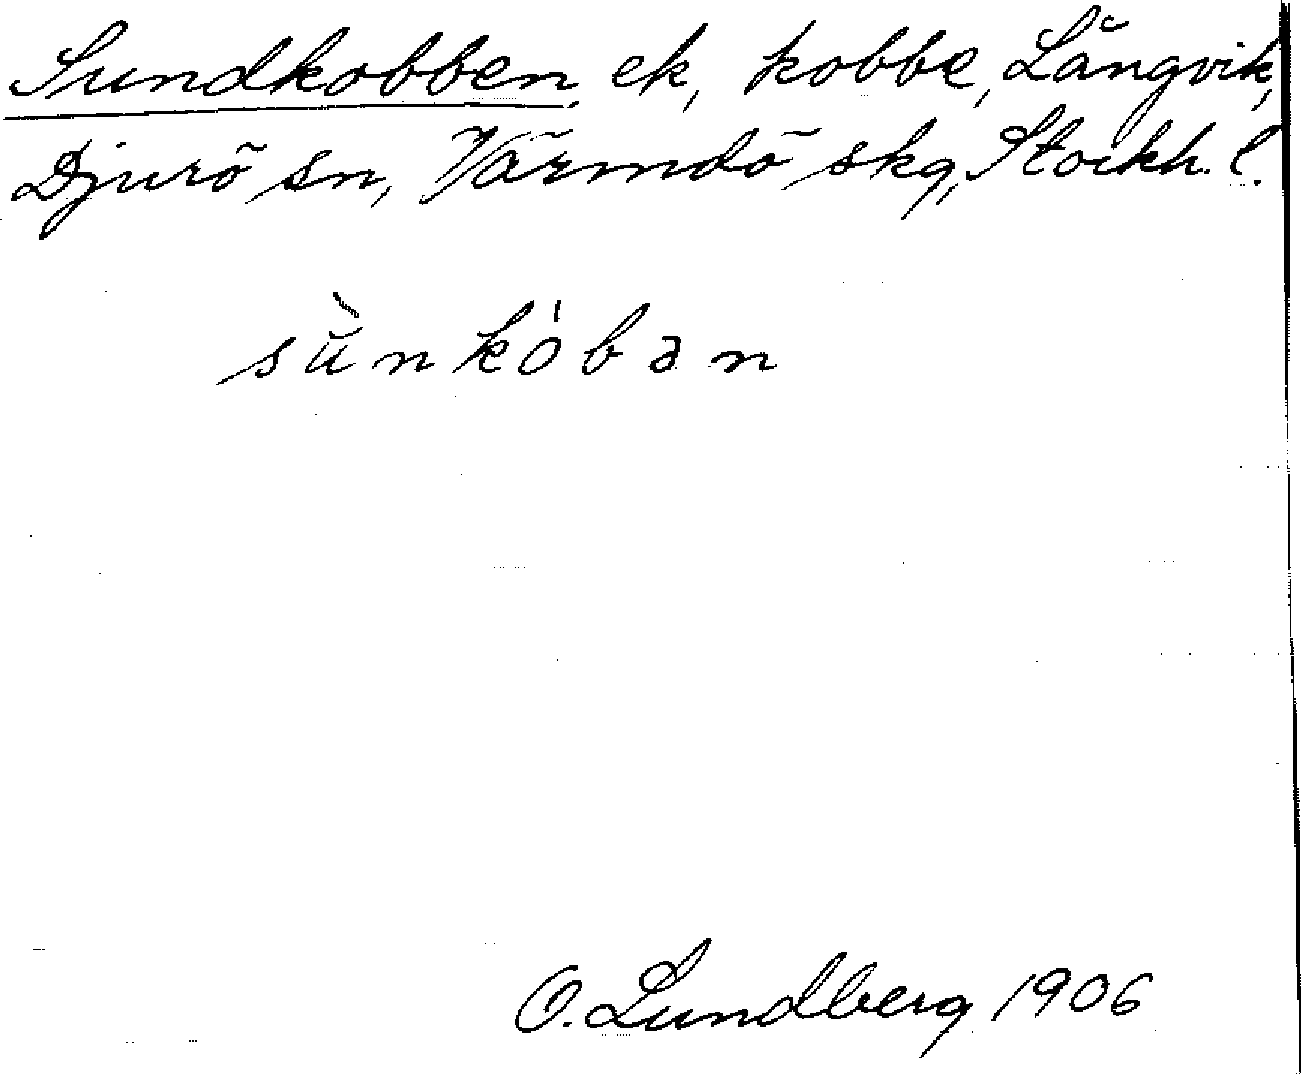 Sundkobben, ek, kobbe, Långvik,
Djurö sn, Värmdö skg, Stockh. l.
sùnkóban
O. Lundberg 1906